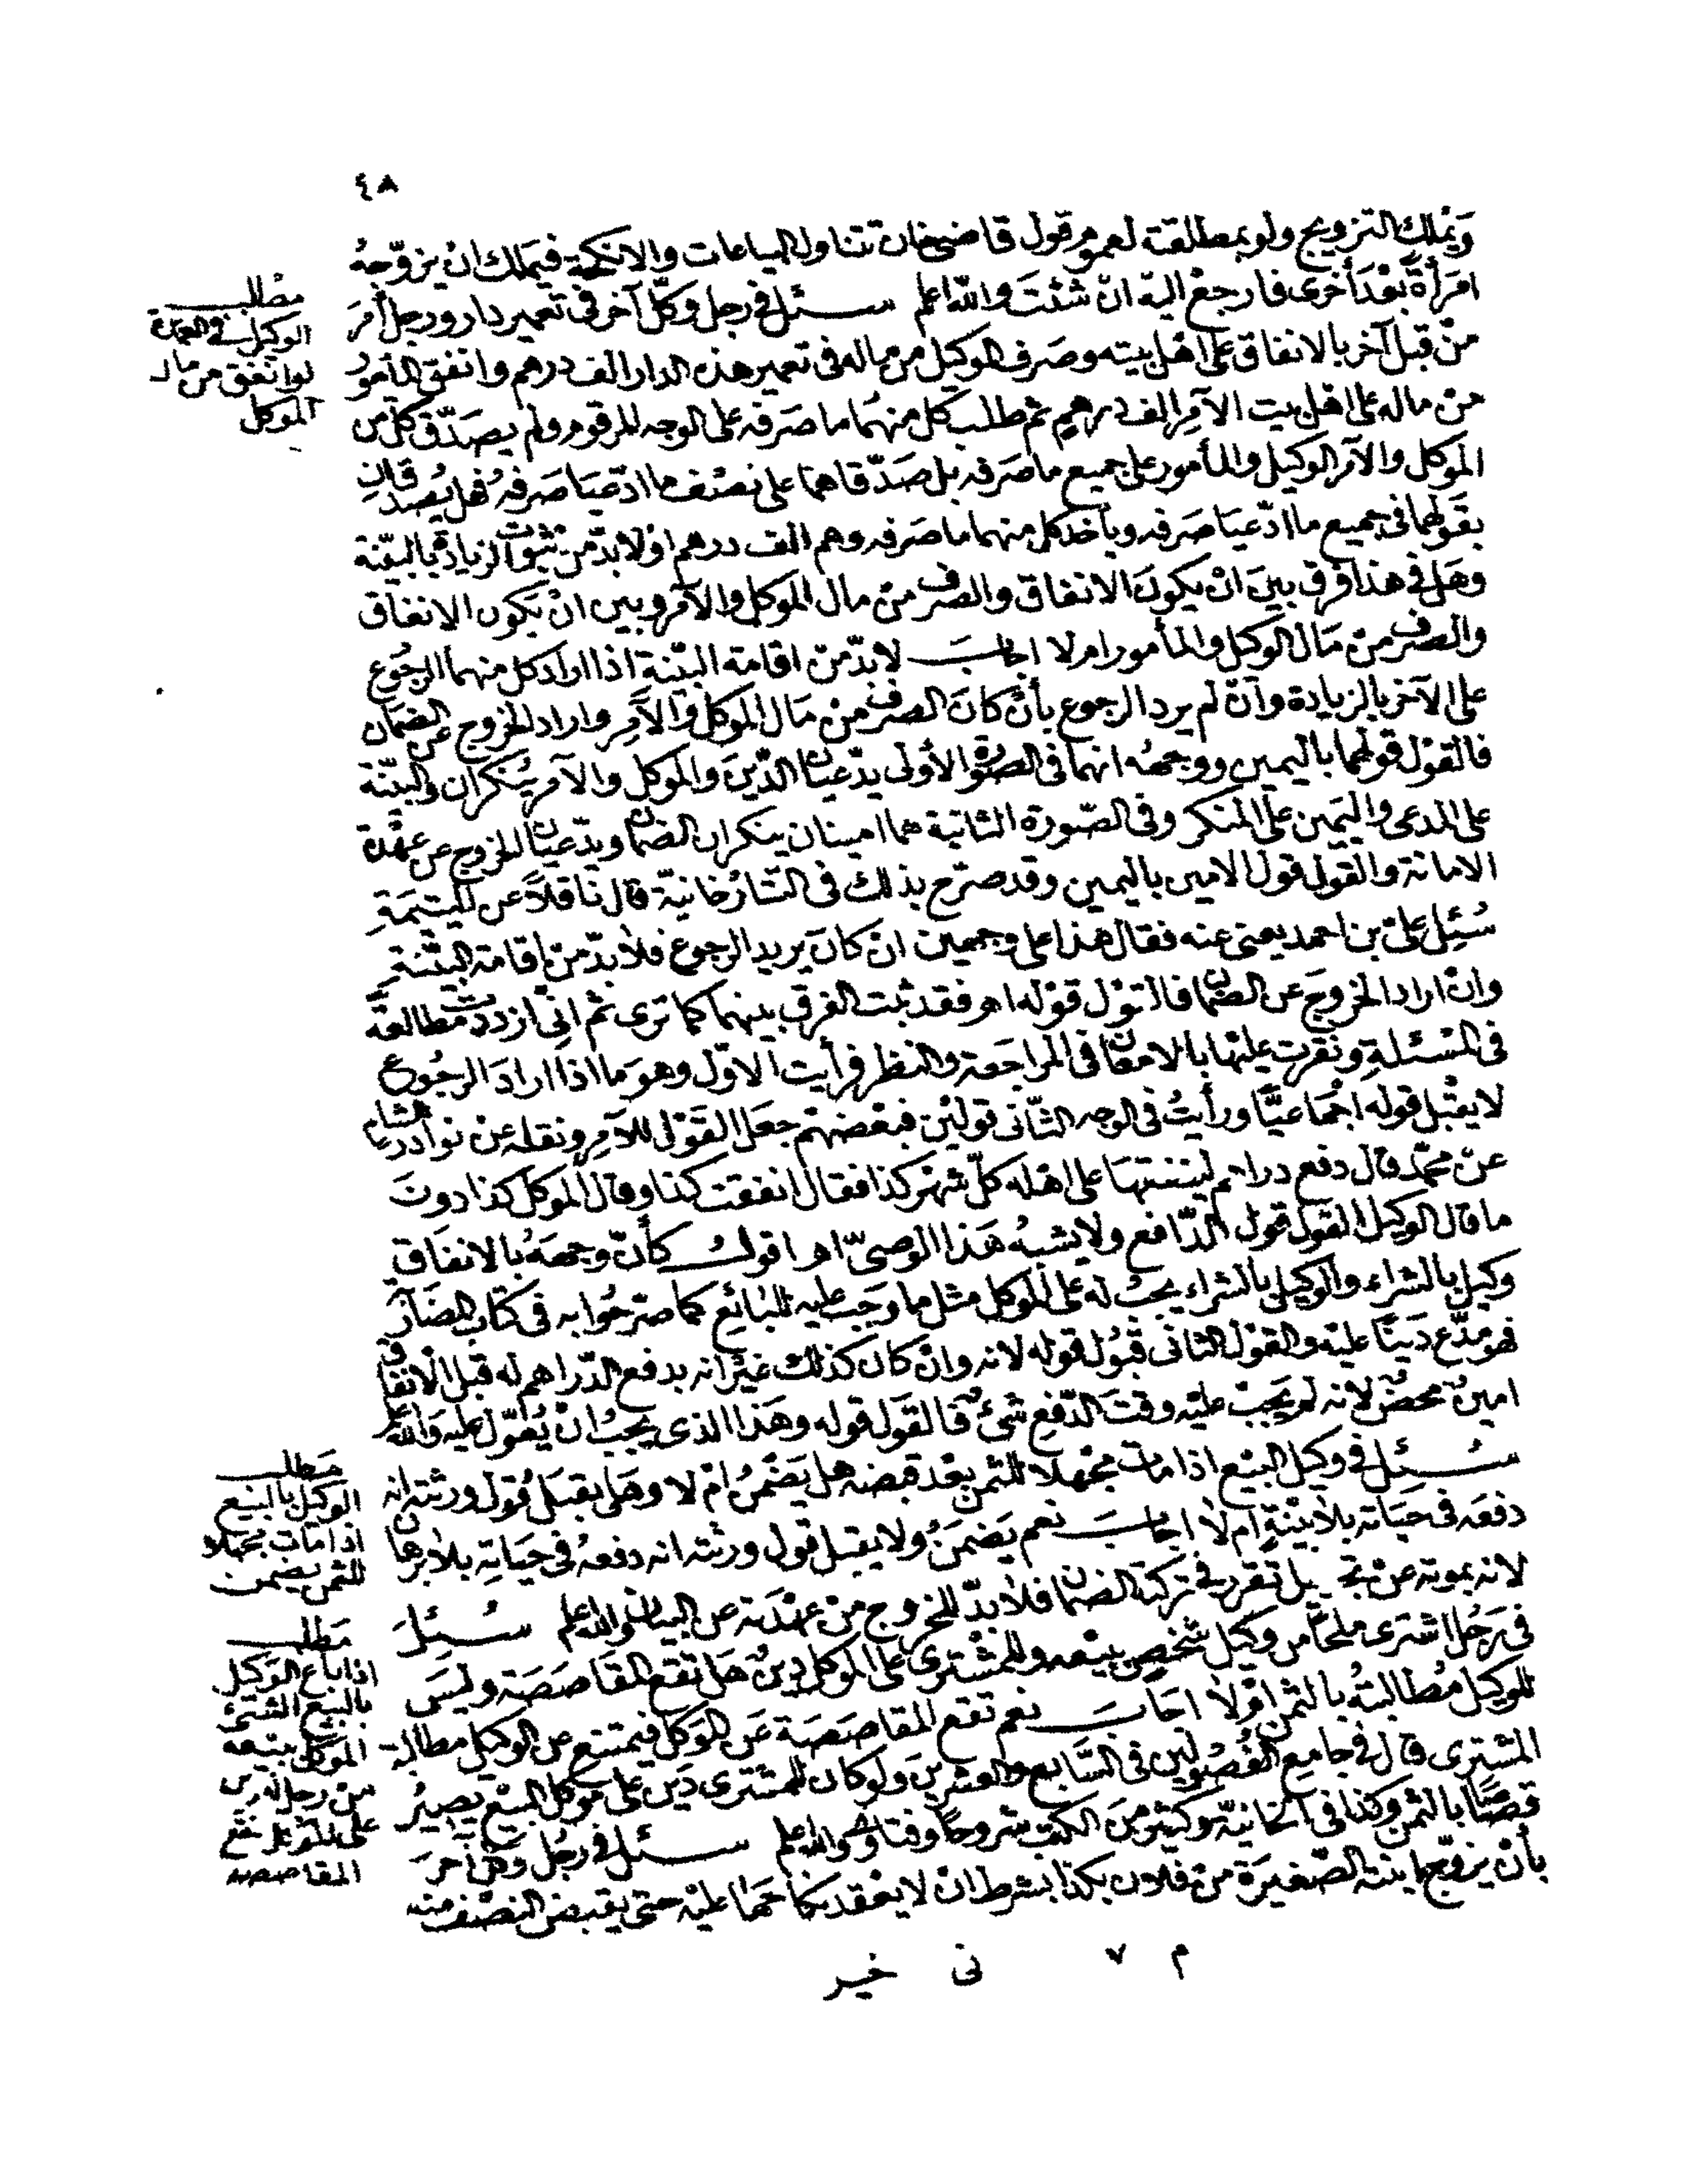 ٤٨
وَيَمْلِك التزويج ولو بمطلقته لعموم قول قاضيخان تتناول البياعات والانكحة فيملك ان يزوّجهُ
امْرَأةً بَعْدَ أخرى فارجع اليه ان شئتَ والله اعلم سئل في رجل وكّل آخر في تعمير دار ورجل أمرَ
منْ قبل آخر بالانفاق على اهل بيته وصَرف الوكيل من ماله في تعمير هذه الدار الف درهم وانفق المأمورُ
منْ ماله على اهل بيت الآمِر الف درهمٍ ثم طلب كل منهمَا ما صَرفه على الوجه المرقوم ولم يصَدّق كل من
الموكل والآمر الوكيل والمأمور على جميع ما صَرفه بل صَدّقاهما على نصْف ما ادّعيَا صَرفهُ فهل يُصَدقانِ
بقولهما في جميع ما ادّعيَا صَرفه ويأخذ كل منهما ما صَرفه وهو الف درهم او لا بدّ من ثبوت الزيادة بالبيّنة
وهَل في هذا فرق بينَ انْ يكونَ الانفاق والصرف منْ مال الموكل والآمر وبين انْ يكون الانفاق
والصرف منْ مَال الوكيل والمأمور ام لا اجابَ لا بدّ من اقامة البيّنة اذا اراد كل منهما الرجُوع
على الآخر بالزيادة وان لم يرد الرجوع بأنْ كانَ الصرف منْ مَال الموكل والآمِر واراد الخروج عن الضمان
فالقول قولهما باليمين ووجهُه انهما في الصورة الأولى يدّعيَان الدّينَ والموكل والآمر يُنكران والبيّنة
على المدعى واليَمين على المنكر وفي الصّورة الثانية هما امينان ينكران الضمان ويدّعيَان الخروج عن عهْدة
الامانة والقول قول الامين باليمين وقد صرّح بذلك في التتارْخانيّة قال ناقلاً عن اليتيمَةِ
سُئِل علىّ بن احمد يعنى عنه فقال هذا على وجهين انْ كانَ يريد الرجوع فلا بدّ منْ اقامة البيّنةِ
وان اراد الخروجَ عن الضمان فالقوْل قوْله اهـ فقد ثبت الفرق بينهما كما ترى ثم انّي ازددت مطالعةً
في المسْئلةِ ونقرت عليْها بالامعَان في المراجَعة والنظر فرأيت الاوّل وهوَ ما اذا ارادَ الرجُوع
لا يقْبل قوله اجْمَاعيًّا ورأيتُ في الوجه الثّاني قوليْن فبعْضهمْ جعَل القوْل للآمِر ونقله عنْ نوادر هشام
عنْ محمّد قال دفع دراهم لينفقهَا على اهْله كلّ شهْر كذا فقال انفقت كذا وقال الموكل كذا دونَ
ما قال الوكيل القول قول الدّافع ولا يشبهُ هَذا الوصيّ اهـ اقول كأنّ وجههُ بالانفَاق
وكيل بالشراء والوكيل بالشراء يجبُ له على الموكل مثل ما وَجَب عليه للبَائِع كما صرّحُوا به في كتاب
فهو مدّعٍ دَينًا عليْه والقوْل الثاني قَبُول قوله لانه وانْ كان كذلك غيْر انه بدفع الدّراهم له قبل الانفاق
امينٌ محْضٌ لانه لم يَجبْ عليْه وقتَ الدّفع شىْءٌ فالقول قوله وهَذا الذي يجبُ انْ يُعَوّل عليه وَالله اعلم
سُئِل في وكيل البيْع اذا مات مجْهلا للثمن بعْد قبضه هل يَضمنُ امْ لا وهَل يقبَل قُول ورثته انه
دفعَه في حيَاته بلا بيّنةٍ ام لا اجابَ نعم يَضمَنُ ولا يقبل قول ورثته انه دفعهُ في حَيَاتِه بلا برهان
لانه بموته عنْ تجهيل تقرر في تركته الضمان فلا بدّ للخروج منْ عهْدته عن البيان والله اعلم سُئِلَ
في رَجُل اشترى ملحًا من وكيل شخص ببيْعه وللمشْتري على الموكل دينٌ هَل تقع المقاصَصَة وليسَ
للوكيل مُطالبَتهُ بالثمن اوْ لا اجَابَ نعم تقع المقاصَصَة عَن الموَكل فيمتنع عن الوكيل مطالبة
المشترى قال في جامع الفُصُولين في السَّابع والعشرين ولو كان للمشترى دَين على موكل البيْع يصيرُ
قصَاصًا بالثمن وكذا في الخانيّة وكثير منَ الكتب شروحًا وفتاوى والله اعلم سئل في رجُل وكّل آخرَ
بأنْ يزوّج ابنته الصّغيرَة منْ فلان بكذا بشرط انْ لا يعْقد نكاحَها عليْه حتى يقبض النصْف منه
م ٧ نى خير
مطلب
الوكيل في العمارة
لو انفق من مال
الموكل
مَطلب
الوكيل بالبيع
اذا مات مجهلا
للثمن يضمن
مَطلب
اذا باع الوَكيل
بالبيع الشئ
الموكل ببيعه
من رجل له دين
على الموكل تقع
المقاصصه